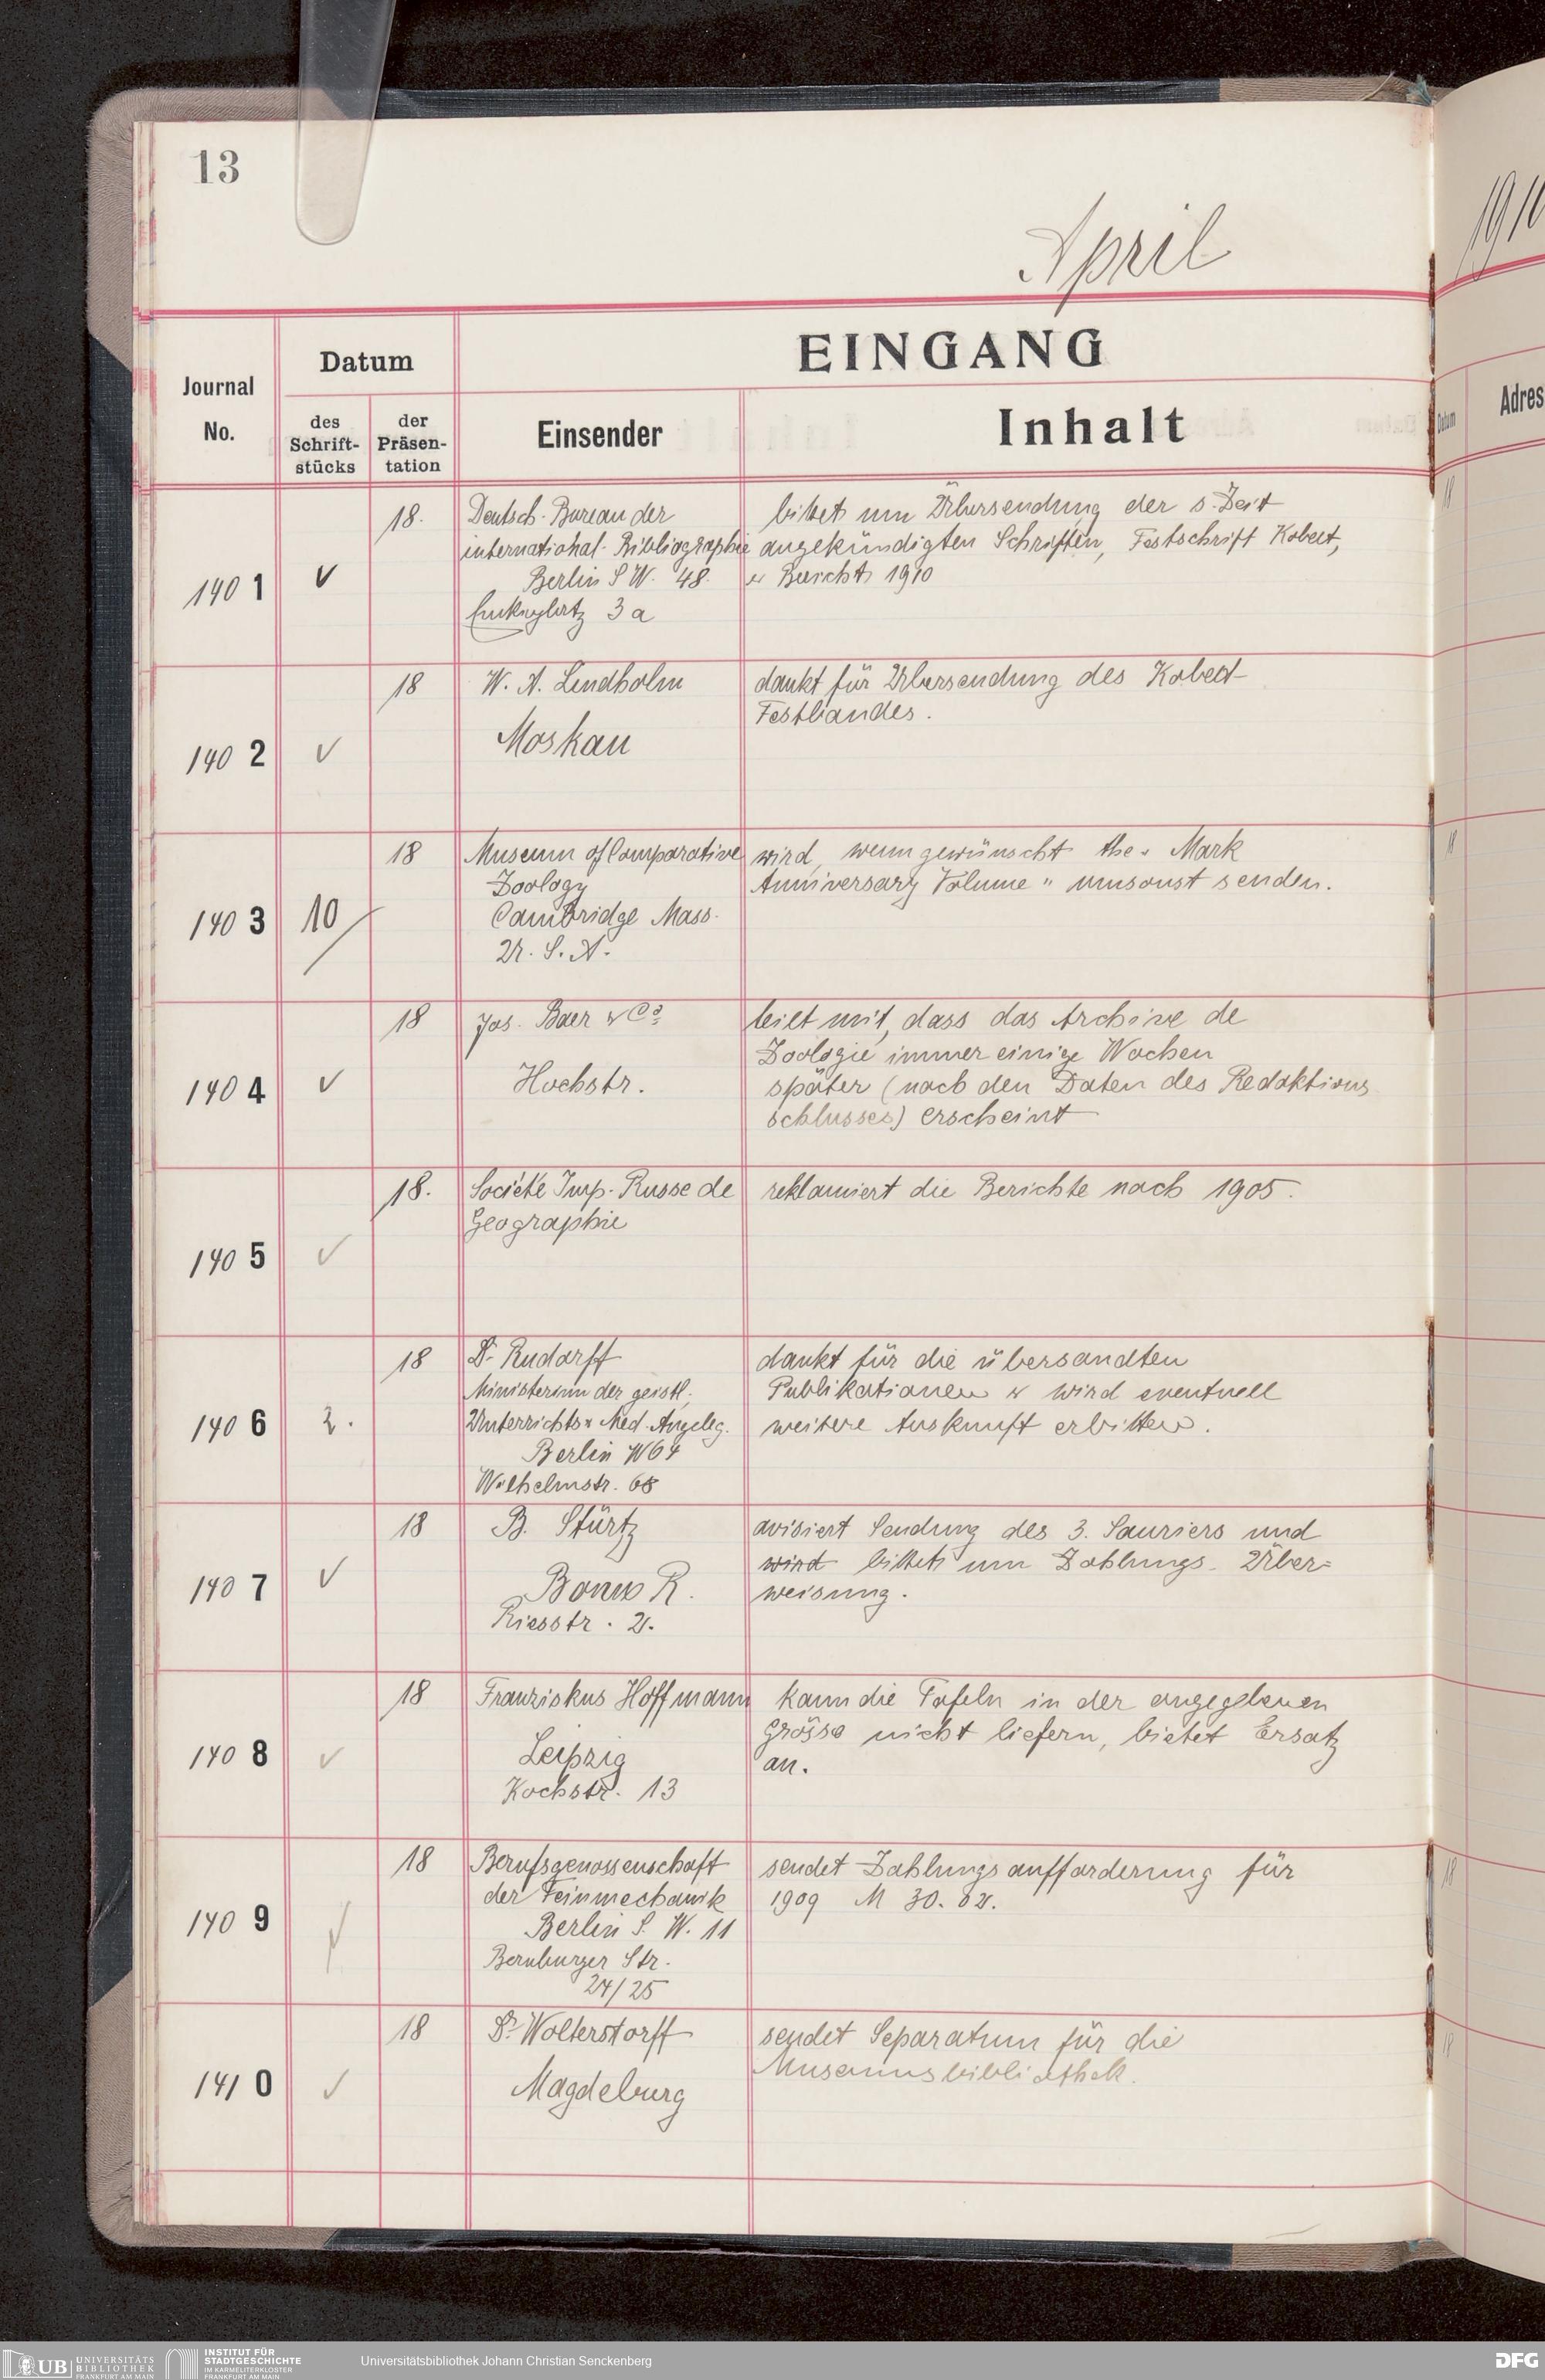 13
April
1910
EINGANG
Journal
No.
Datum
des
Schrift-
stücks
der
Präsen-
tation
Einsender
Inhalt
Datum
Adres
1401
✓
18.
Deutsch. Bureau der
international. Bibliographie
Berlin S W. 48.
Enckeplatz 3 a
bittet um Übersendung der s. Zeit
angekündigten Schriften, Festschrift Kobelt,
u Bericht 1910
18
1402
✓
18
W. A. Lindholm
Moskau
dankt für Übersendung des Kobelt-
Festbandes.
1403
10
18
Museum of Comparative
Zoology
Cambridge Mass.
U. S. A.
wird, wenn gewünscht the „Mark
Anniversary Volume" umsonst senden.
18
1404
✓
18
Jos. Baer & Co
Hochstr.
teilt mit, dass das Archive de
Zoologie immer einige Wochen
später (nach den Daten des Redaktions
schlusses) erscheint
1405
✓
18.
Société Imp. Russe de
Geographie
reklamiert die Berichte nach 1905.
1406
2.
18
Dr. Rudorff
Ministerium der geistl.,
Unterrichts u Med. Angeleg.
Berlin W 64
Wilhelmstr. 68
dankt für die übersandten
Publikationen u wird eventuell
weitere Auskunft erbitten.
1407
✓
18
B. Stürtz
Bonn R.
Riesstr. 2.
avisiert Sendung des 3. Sauriers und
wird bittet um Zahlungs-Über=
weisung.
1408
✓
18
Franziskus Hoffmann
Leipzig
Kochstr. 13
kann die Tafeln in der angegebenen
Grösse nicht liefern, bietet Ersatz
an.
1409
✓
18
Berufsgenossenschaft
der Feinmechanik
Berlin S. W. 11
Bernburger Str.
24/25
sendet Zahlungsaufforderung für
1909 M 30.82.
18
1410
✓
18
Dr. Wolterstorff
Magdeburg
sendet Separatum für die
Museumsbibliothek.
18
UB UNIVERSITÄTS
BIBLIOTHEK
FRANKFURT AM MAIN
INSTITUT FÜR
STADTGESCHICHTE
IM KARMELITERKLOSTER
FRANKFURT AM MAIN
Universitätsbibliothek Johann Christian Senckenberg
DFG